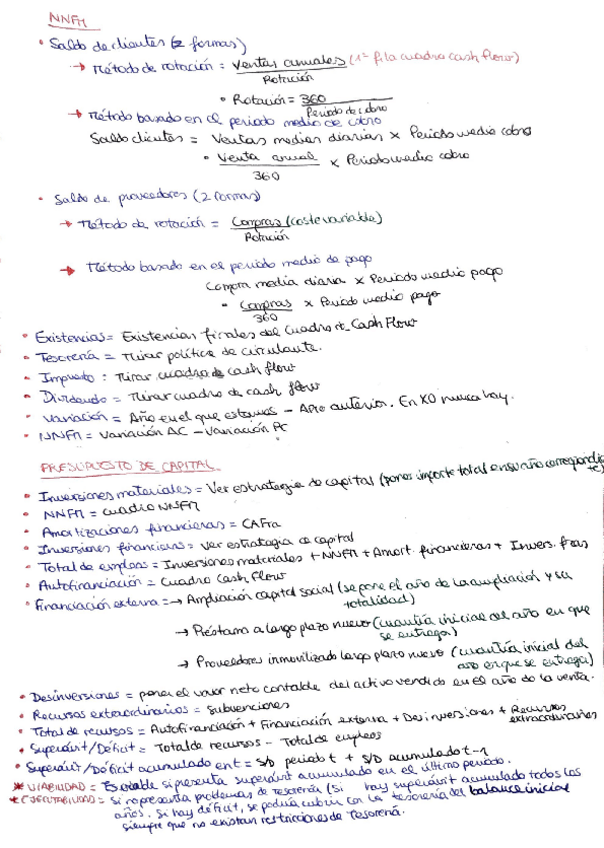 NNFM
• Saldo de clientes (2 formas)
→ Método de rotación = Ventas anuales (1ª fila cuadro cash flow)
Rotación
• Rotación = 360
Periodo de cobro
→ Método basado en el periodo medio de cobro
Saldo clientes = Ventas medias diarias x Periodo medio cobro
• Venta anual x Periodo medio cobro
360
• Saldo de proveedores (2 formas)
→ Método de rotación = Compras (coste variable)
Rotación
→ Método basado en el periodo medio de pago
Compra media diaria x Periodo medio pago
• Compras x Periodo medio pago
360
• Existencias = Existencias finales del Cuadro de Cash Flow
• Tesorería = Mirar política de circulante.
• Impuesto : Mirar cuadro de cash flow
• Dividendo = Mirar cuadro de cash flow
• Variación = Año en el que estamos - Año anterior. En X0 nunca hay.
• NNFM = Variación AC - Variación PC
PRESUPUESTO DE CAPITAL
• Inversiones materiales = Ver estrategia de capital (pones importe total en su año correspondiente)
• NNFM = cuadro NNFM
• Amortizaciones financieras = CAFra
• Inversiones financieras = Ver estrategia de capital
• Total de empleos = Inversiones materiales + NNFM + Amort. financieras + Invers. fras
• Autofinanciación = Cuadro Cash Flow
• Financiación externa = → Ampliación capital social (se pone el año de la ampliación y su
totalidad)
→ Préstamo a largo plazo nuevo (cuantía inicial del año en que
se entrega)
→ Proveedores inmovilizado largo plazo nuevo (cuantía inicial del
año en que se entrega)
• Desinversiones = poner el valor neto contable del activo vendido en el año de la venta.
• Recursos extraordinarios = subvenciones
• Total de recursos = Autofinanciación + Financiación externa + Desinversiones + Recursos
extraordinarios
• Superávit/Déficit = Total de recursos - Total de empleos
• Superávit/Déficit acumulado en t = S/D periodo t + S/D acumulado t-1
* VIABILIDAD = Es viable si presenta superávit acumulado en el último periodo.
* EJECUTABILIDAD = Si no presenta problemas de tesorería (si hay superávit acumulado todos los
años. Si hay déficit, se podría cubrir con la tesorería del balance inicial
siempre que no existan restricciones de Tesorería.